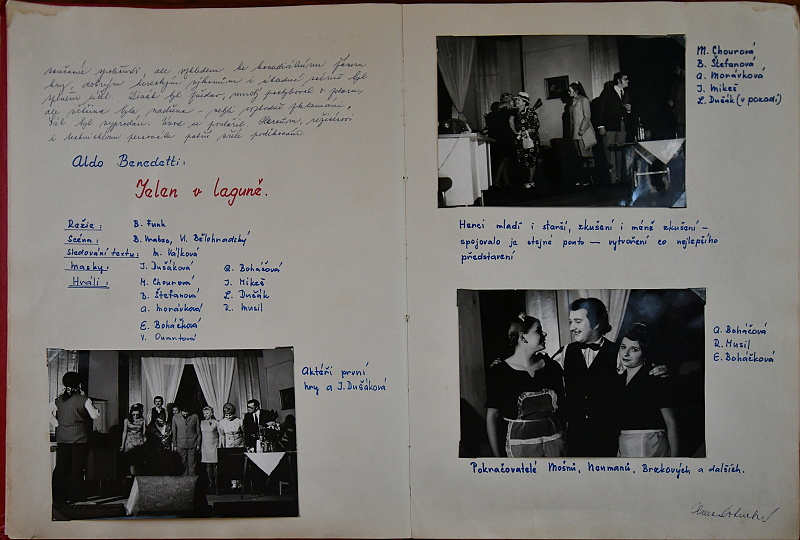 současné společnosti, ale vzhledem ke komediálnímu žánru
hry, dobrým hereckým výkonům i skladně režie byl
splněn účel. Divák byl
ale většina byla nadšena - nešli vzhodně přetrumání,
Sál byl vyprodán. Úvod se podařil. Hercům, režisérovi
i technickému personálu patří vřelé poděkování
Aldo Benedetti:
Jelen v laguně.
Režie: B. Funk
Scéna: B. Vrabec, M. Bělohradský
Sledování textu: M. Válková
Masky: J. Dušáková
Hráli: M. Chourová
B. Štefanová
A. Morávková
E. Boháčková
V. Quantová
A. Boháčová
J. Mikeš
L. Dušák
R. Musil
Aktéři první
hry a J. Dušáková
M. Chourová
B. Štefanová
A. Morávková
J. Mikeš
L. Dušák (v pozadí)
Herci mladí i starší, zkušení i méně zkušení -
spojovalo je stejné pouto - vytvoření co nejlepšího
představení
A. Boháčová
R. Musil
E. Boháčková
Pokračovatelé Mošnů, Neumanů, Brzkových a dalších.